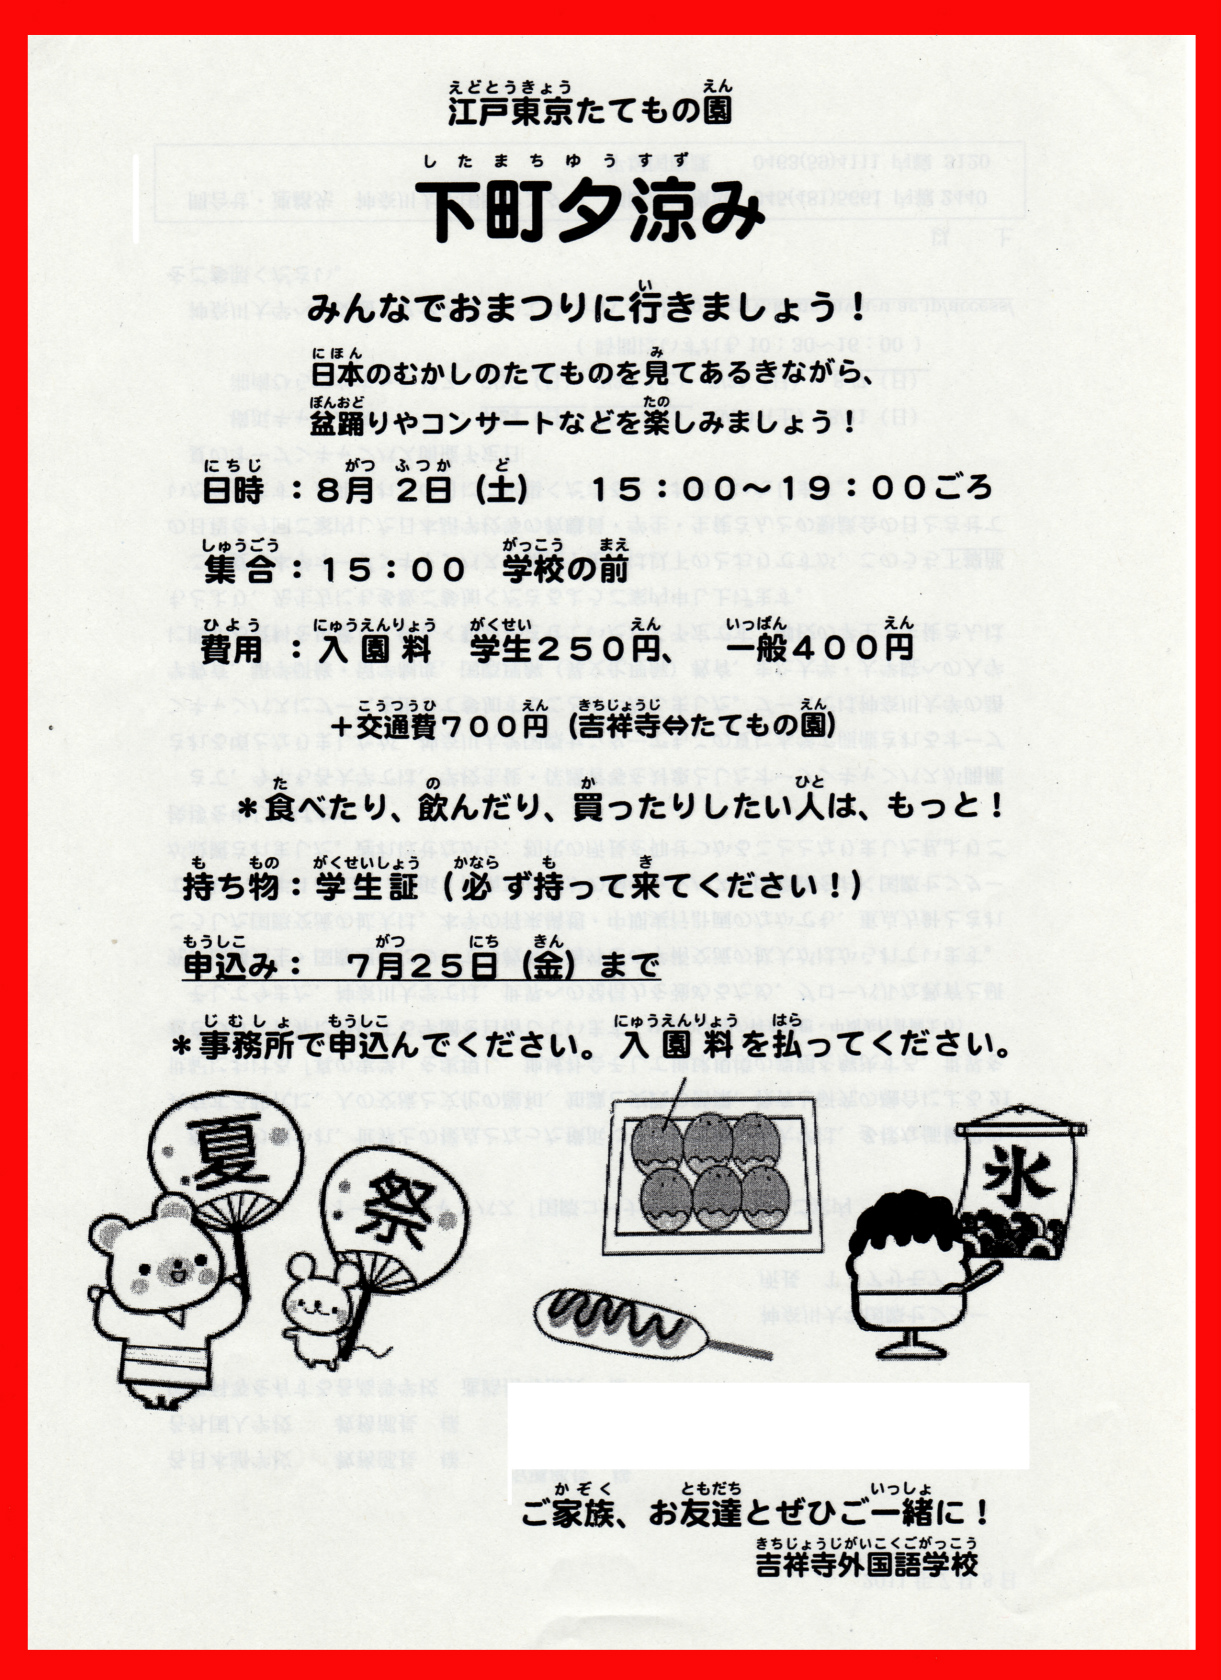 江戸東京たてもの園
下町夕涼み
みんなでおまつりに行きましょう！
日本のむかしのたてものを見てあるきながら、
盆踊りやコンサートなどを楽しみましょう！
日時：８月 ２日（土） １５：００～１９：００ごろ
集合：１５：００ 学校の前
費用：入園料 学生２５０円、 一般４００円
＋交通費７００円（吉祥寺⇔たてもの園）
＊食べたり、飲んだり、買ったりしたい人は、もっと！
持ち物：学生証（必ず持って来てください！）
申込み： ７月２５日（金）まで
＊事務所で申込んでください。入園料を払ってください。
夏
祭
氷
ご家族、お友達とぜひご一緒に！
吉祥寺外国語学校